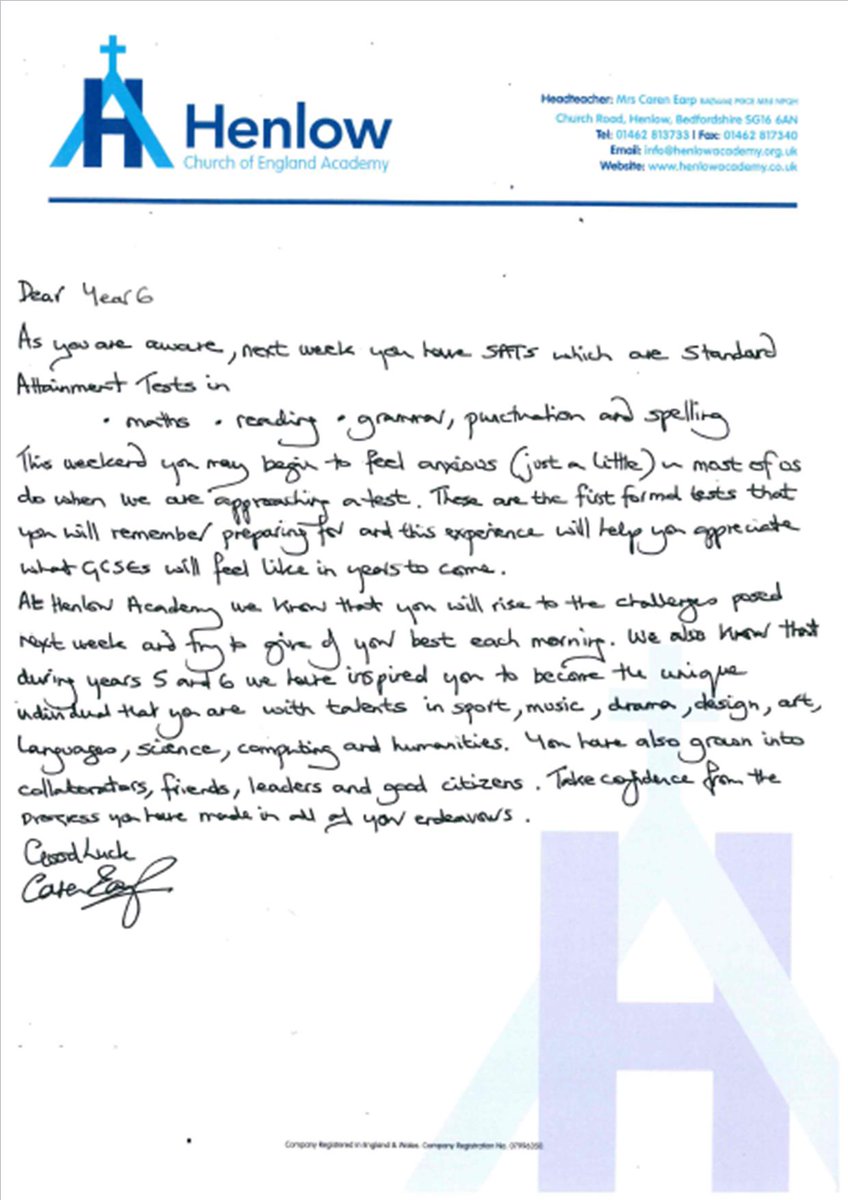 Henlow
Church of England Academy
Headteacher: Mrs Caren Earp
Church Road, Henlow, Bedfordshire SG16 6AN
Tel: 01462 813733 | Fax: 01462 817340
Email: info@henlowacademy.org.uk
Website: www.henlowacademy.co.uk
Dear Year 6
As you are aware, next week you have SATs which are Standard
Attainment Tests in
• maths • reading • grammar, punctuation and spelling
This weekend you may begin to feel anxious (just a little) most of us
do when we are approaching a test. These are the first formal tests that
you will remember preparing for and this experience will help you appreciate
what GCSEs will feel like in years to come.
At Henlow Academy we know that you will rise to the challenges posed
next week and try to give of your best each morning. We also know that
during years 5 and 6 we have inspired you to become the unique
individual that you are with talents in sport, music, drama, design, art,
languages, science, computing and humanities. You have also grown into
collaborators, friends, leaders and good citizens. Take confidence from the
progress you have made in all of your endeavours.
Good Luck
Caren Earp
Company Registered in England & Wales. Company Registration No.